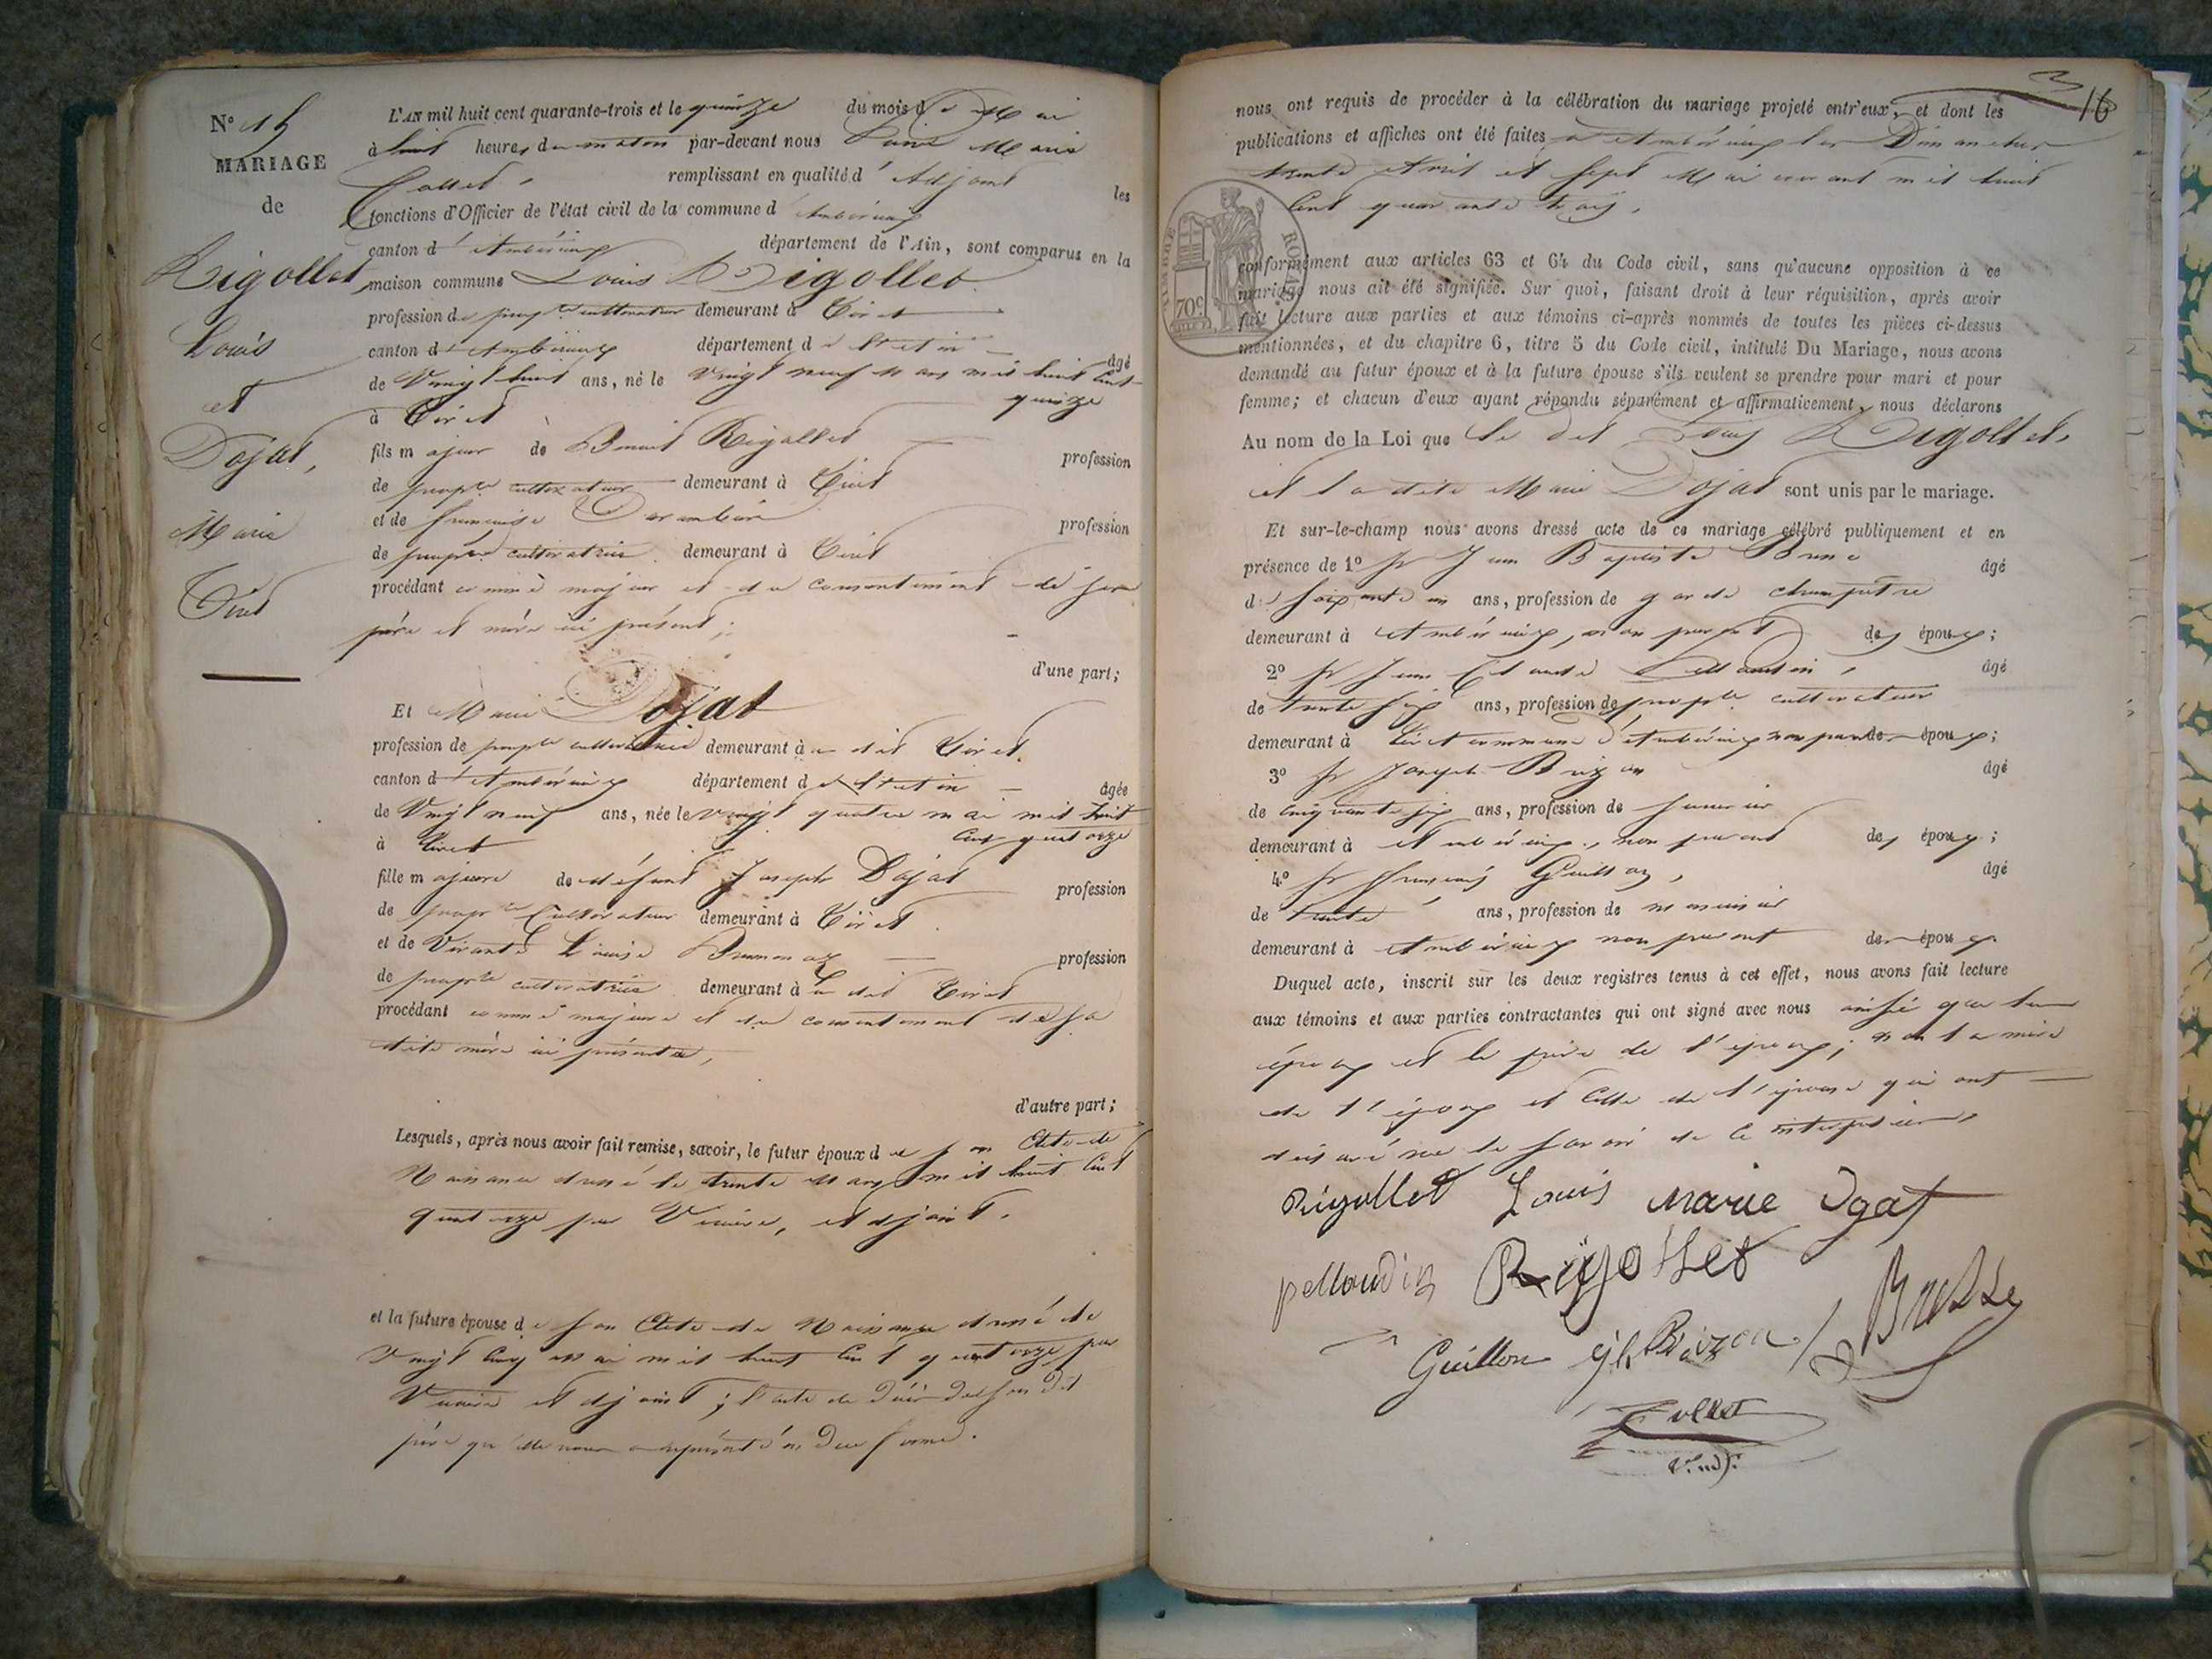 N° 15
MARIAGE
de
Rigollet
Louis
et
Dojat,
Marie
Tiret
L'AN mil huit cent quarante-trois et le quinze du mois de Mai
à huit heures du matin par-devant nous Marie
Collet, remplissant en qualité d'Adjoint les
fonctions d'Officier de l'état civil de la commune d'Ambérieux
canton d'Ambérieux département de l'Ain, sont comparus en la
maison commune Louis Rigollet
profession de prop.re cultivateur demeurant à Tiret
canton d'Ambérieux département de l'Ain âgé
de Vingt huit ans, né le Vingt neuf Mars mil huit cent
quinze
à Tiret
fils majeur de Benoit Rigollet profession
de prop.re cultivateur demeurant à Tiret
et de françoise profession
de prop.re cultivatrice demeurant à Tiret
procédant comme majeur et du consentement de ses
père et mère ici présents;
d'une part;
Et Marie Dojat
profession de prop.re cultivatrice demeurant à dit Tiret
canton d'Ambérieux département de l'Ain âgée
de Vingt neuf ans, née le vingt quatre mai mil huit
cent quatorze
à Tiret
fille majeure de défunt Joseph Dojat profession
de prop.re Cultivateur demeurant à Tiret
et de Vivante Louise profession
de prop.re cultivatrice demeurant à dit Tiret
procédant comme majeure et du consentement de sa
dite mère ici présente,
d'autre part;
Lesquels, après nous avoir fait remise, savoir, le futur époux de son Acte de
Naissance dressé le trente Mars mil huit cent
quatorze par , Adjoint.
et la future épouse de son Acte de Naissance dressé le
Vingt cinq Mai mil huit cent quatorze par
Adjoint; l'acte de décès de son dit
père qu'elle nous a représenté en due forme.
16
nous ont requis de procéder à la célébration du mariage projeté entr'eux, et dont les
publications et affiches ont été faites à Ambérieux les Dimanches
trente Avril et sept Mai courant mil huit
cent quarante trois,
TIMBRE ROYAL
70c
conformément aux articles 63 et 64 du Code civil, sans qu'aucune opposition à ce
mariage nous ait été signifiée. Sur quoi, faisant droit à leur réquisition, après avoir
fait lecture aux parties et aux témoins ci-après nommés de toutes les pièces ci-dessus
mentionnées, et du chapitre 6, titre 5 du Code civil, intitulé Du Mariage, nous avons
demandé au futur époux et à la future épouse s'ils veulent se prendre pour mari et pour
femme; et chacun d'eux ayant répondu séparément et affirmativement, nous déclarons
Au nom de la Loi que le dit Louis Rigollet,
et la dite Marie Dojat sont unis par le mariage.
Et sur-le-champ nous avons dressé acte de ce mariage célébré publiquement et en
présence de 1° Sr Jean Baptiste âgé
de soixante un ans, profession de garde champêtre
demeurant à Ambérieux, non parent des époux;
2° Sr Jean Claude Pellaudin, âgé
de trente six ans, profession de prop.re cultivateur
demeurant à Tiret commune d'Ambérieux non parent des époux;
3° Sr Joseph Brizon âgé
de cinquante six ans, profession de
demeurant à Ambérieux, non parent des époux;
4° Sr François Guillon, âgé
de trente ans, profession de menuisier
demeurant à Ambérieux non parent des époux.
Duquel acte, inscrit sur les deux registres tenus à cet effet, nous avons fait lecture
aux témoins et aux parties contractantes qui ont signé avec nous ainsi que les
époux et le père de l'époux; non la mère
de l'époux et celle de l'épouse qui ont
déclaré ne le savoir de ce
Rigollet Louis Marie Dgat
pellaudin Rigollet
Guillon Brizon
Collet